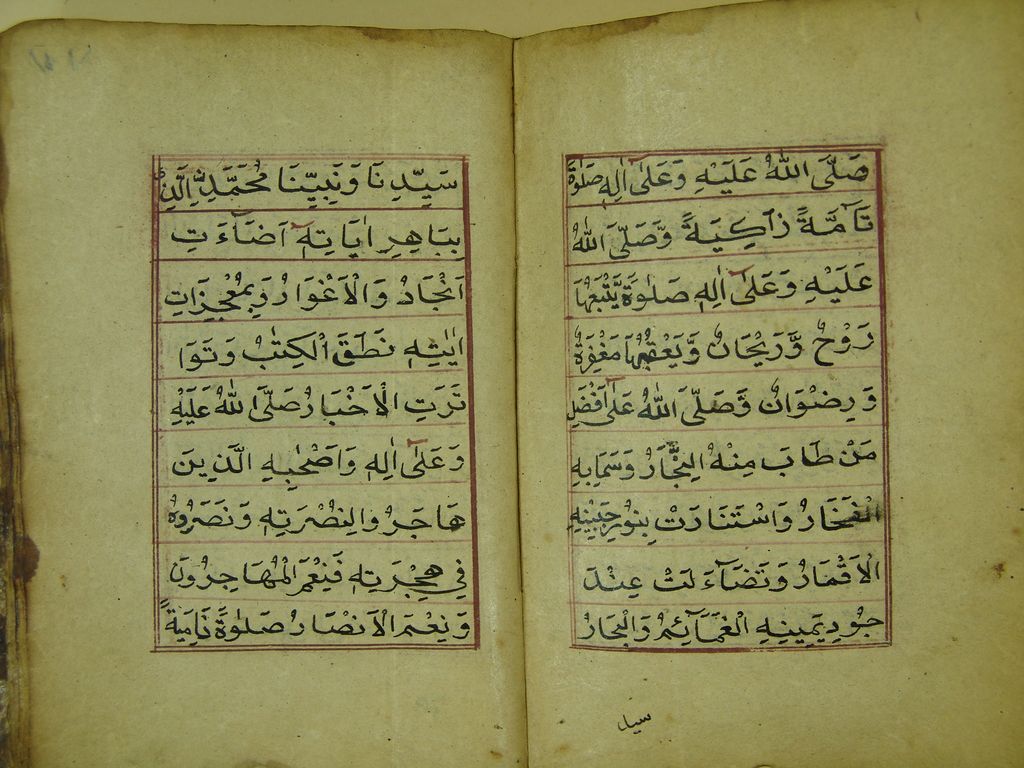 صَلَّى اللهُ عَلَيْهِ وَعَلٰى اٰلِهٖ صَلٰوةً
تَآمَّةً زَاكِيَةً وَّصَلَّى اللهُ
عَلَيْهِ وَعَلٰى اٰلِهٖ صَلٰوةً يَّتْبَعُهَا
رَوْحٌ وَّرَيْحَانٌ وَّيَعْقُبُهَا مَغْفِرَةٌ
وَرِضْوَانٌ وَّصَلَّى اللهُ عَلٰى اَفْضَلِ
مَنْ طَابَ مِنْهُ النِّجَارُ وَسَمَا بِهِ
الْفَخَارُ وَاسْتَنَارَتْ بِنُوْرِ جَبِيْنِهِ
الْاَقْمَارُ وَتَضَآءَلَتْ عِنْدَ
جُوْدِ يَمِيْنِهِ الْغَمَآئِمُ وَالْبِحَارُ
سيد
سَيِّدِنَا وَنَبِيِّنَا مُحَمَّدِ ۨالَّذِيْ
بِبَاهِرِ اٰيَاتِهٖ اَضَآءَتِ
اَنْجَادُ وَالْاَغْوَارُ وَبِمُعْجِزَاتِ
اٰيٰتِهٖ نَطَقَ الْكِتٰبُ وَتَوَا
تَرَتِ الْاَخْبَارُ صَلَّى اللهُ عَلَيْهِ
وَعَلٰى اٰلِهٖ وَاَصْحٰبِهِ الَّذِيْنَ
هَاجَرُوا لِنُصْرَتِهٖ وَنَصَرُوْهُ
فِيْ هِجْرَتِهٖ فَنِعْمَ الْمُهَاجِرُوْنَ
وَنِعْمَ الْاَنْصَارُ صَلٰوةً نَامِيَةً